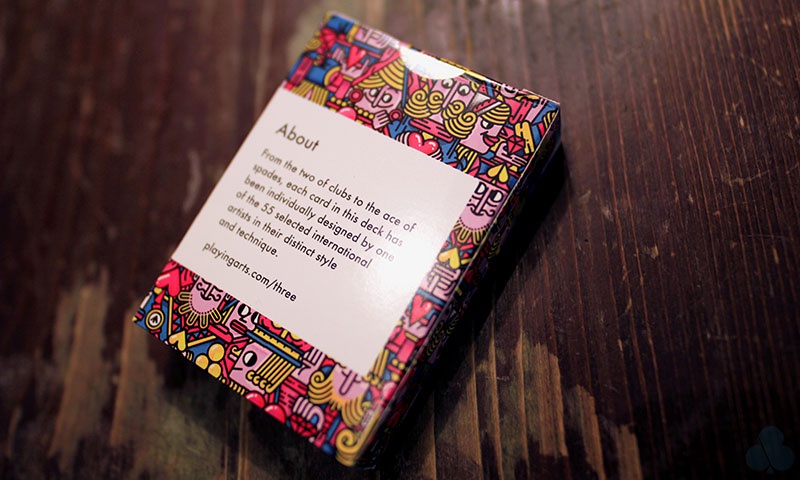 About
From the two of clubs to the ace of
spades, each card in this deck has
been individually designed by one
of the 55 selected international
artists in their distinct style
and technique.
playingarts.com/three